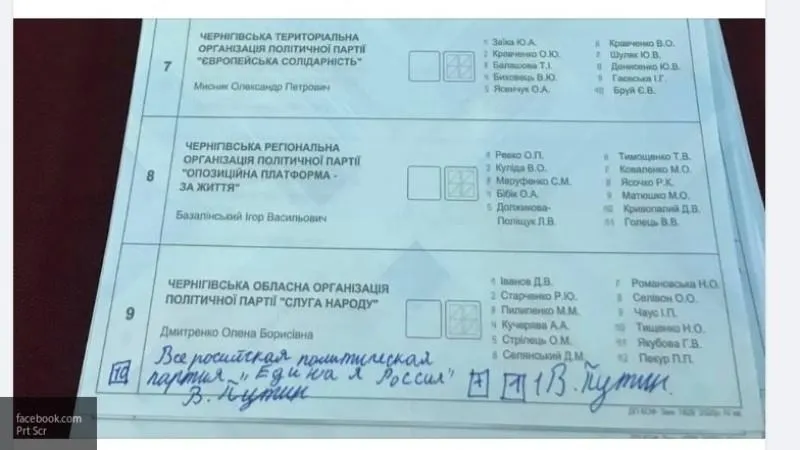 7
ЧЕРНІГІВСЬКА ТЕРИТОРІАЛЬНА
ОРГАНІЗАЦІЯ ПОЛІТИЧНОЇ ПАРТІЇ
"ЄВРОПЕЙСЬКА СОЛІДАРНІСТЬ"
Мисник Олександр Петрович
1 Заїка Ю.А.
2 Кравченко О.Ю.
3 Балашова Т.І.
4 Биховець В.Ю.
5 Ясенчук О.А.
6 Кравченко В.О.
7 Шуляк Ю.В.
8 Денисенко Ю.В.
9 Гаєвська І.Г.
10 Бруй Є.В.
8
ЧЕРНІГІВСЬКА РЕГІОНАЛЬНА
ОРГАНІЗАЦІЯ ПОЛІТИЧНОЇ ПАРТІЇ
"ОПОЗИЦІЙНА ПЛАТФОРМА -
ЗА ЖИТТЯ"
Базалінський Ігор Васильович
1 Ревко О.П.
2 Куліда В.О.
3 Маруфенко С.М.
4 Бібік О.А.
5 Должикова-
Поліщук Л.В.
6 Тимощенко Т.В.
7 Коваленко М.О.
8 Ясочко Р.К.
9 Матюшко М.О.
10 Кривопалий Д.В.
11 Голець В.В.
9
ЧЕРНІГІВСЬКА ОБЛАСНА ОРГАНІЗАЦІЯ
ПОЛІТИЧНОЇ ПАРТІЇ "СЛУГА НАРОДУ"
Дмитренко Олена Борисівна
1 Іванов Д.В.
2 Старченко Р.Ю.
3 Пилипенко М.М.
4 Кучерява А.А.
5 Стрілець О.М.
6 Селянський Д.М.
7 Романовська Н.О.
8 Селівон О.О.
9 Чаус І.П.
10 Тищенко Н.О.
11 Якубова Г.В.
12 Пекур П.П.
10
Всеросийская политическая
партия "Единая Россия"
В. Путин
1 В. Путин
facebook.com
Prt Scr